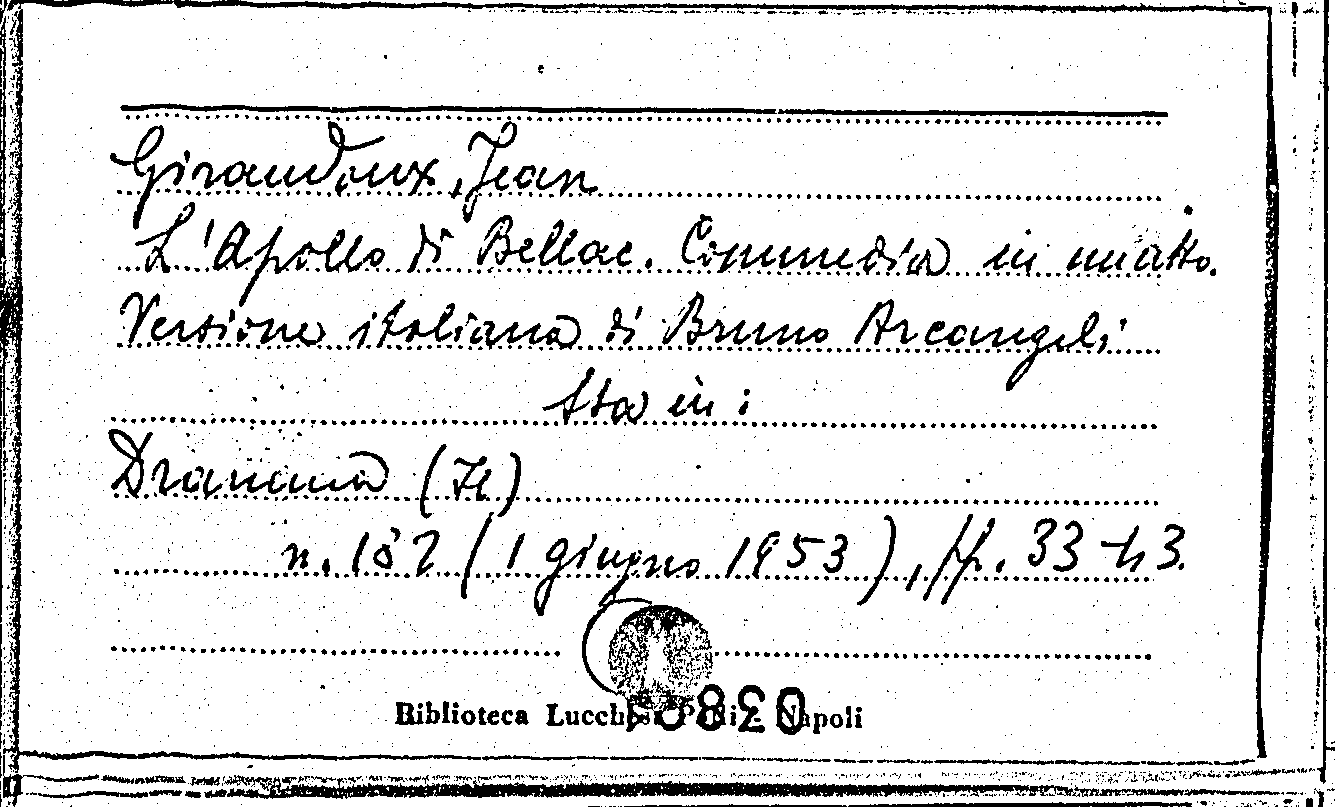 Giraudoux, Jean
L'Apollo di Bellac. Commedia in un atto.
Versione italiana di Bruno Arcangeli
Sta in:
Dramma (Il)
n. 182 (1 giugno 1953), pp. 33-43.
Biblioteca Lucchesi Palli - Napoli